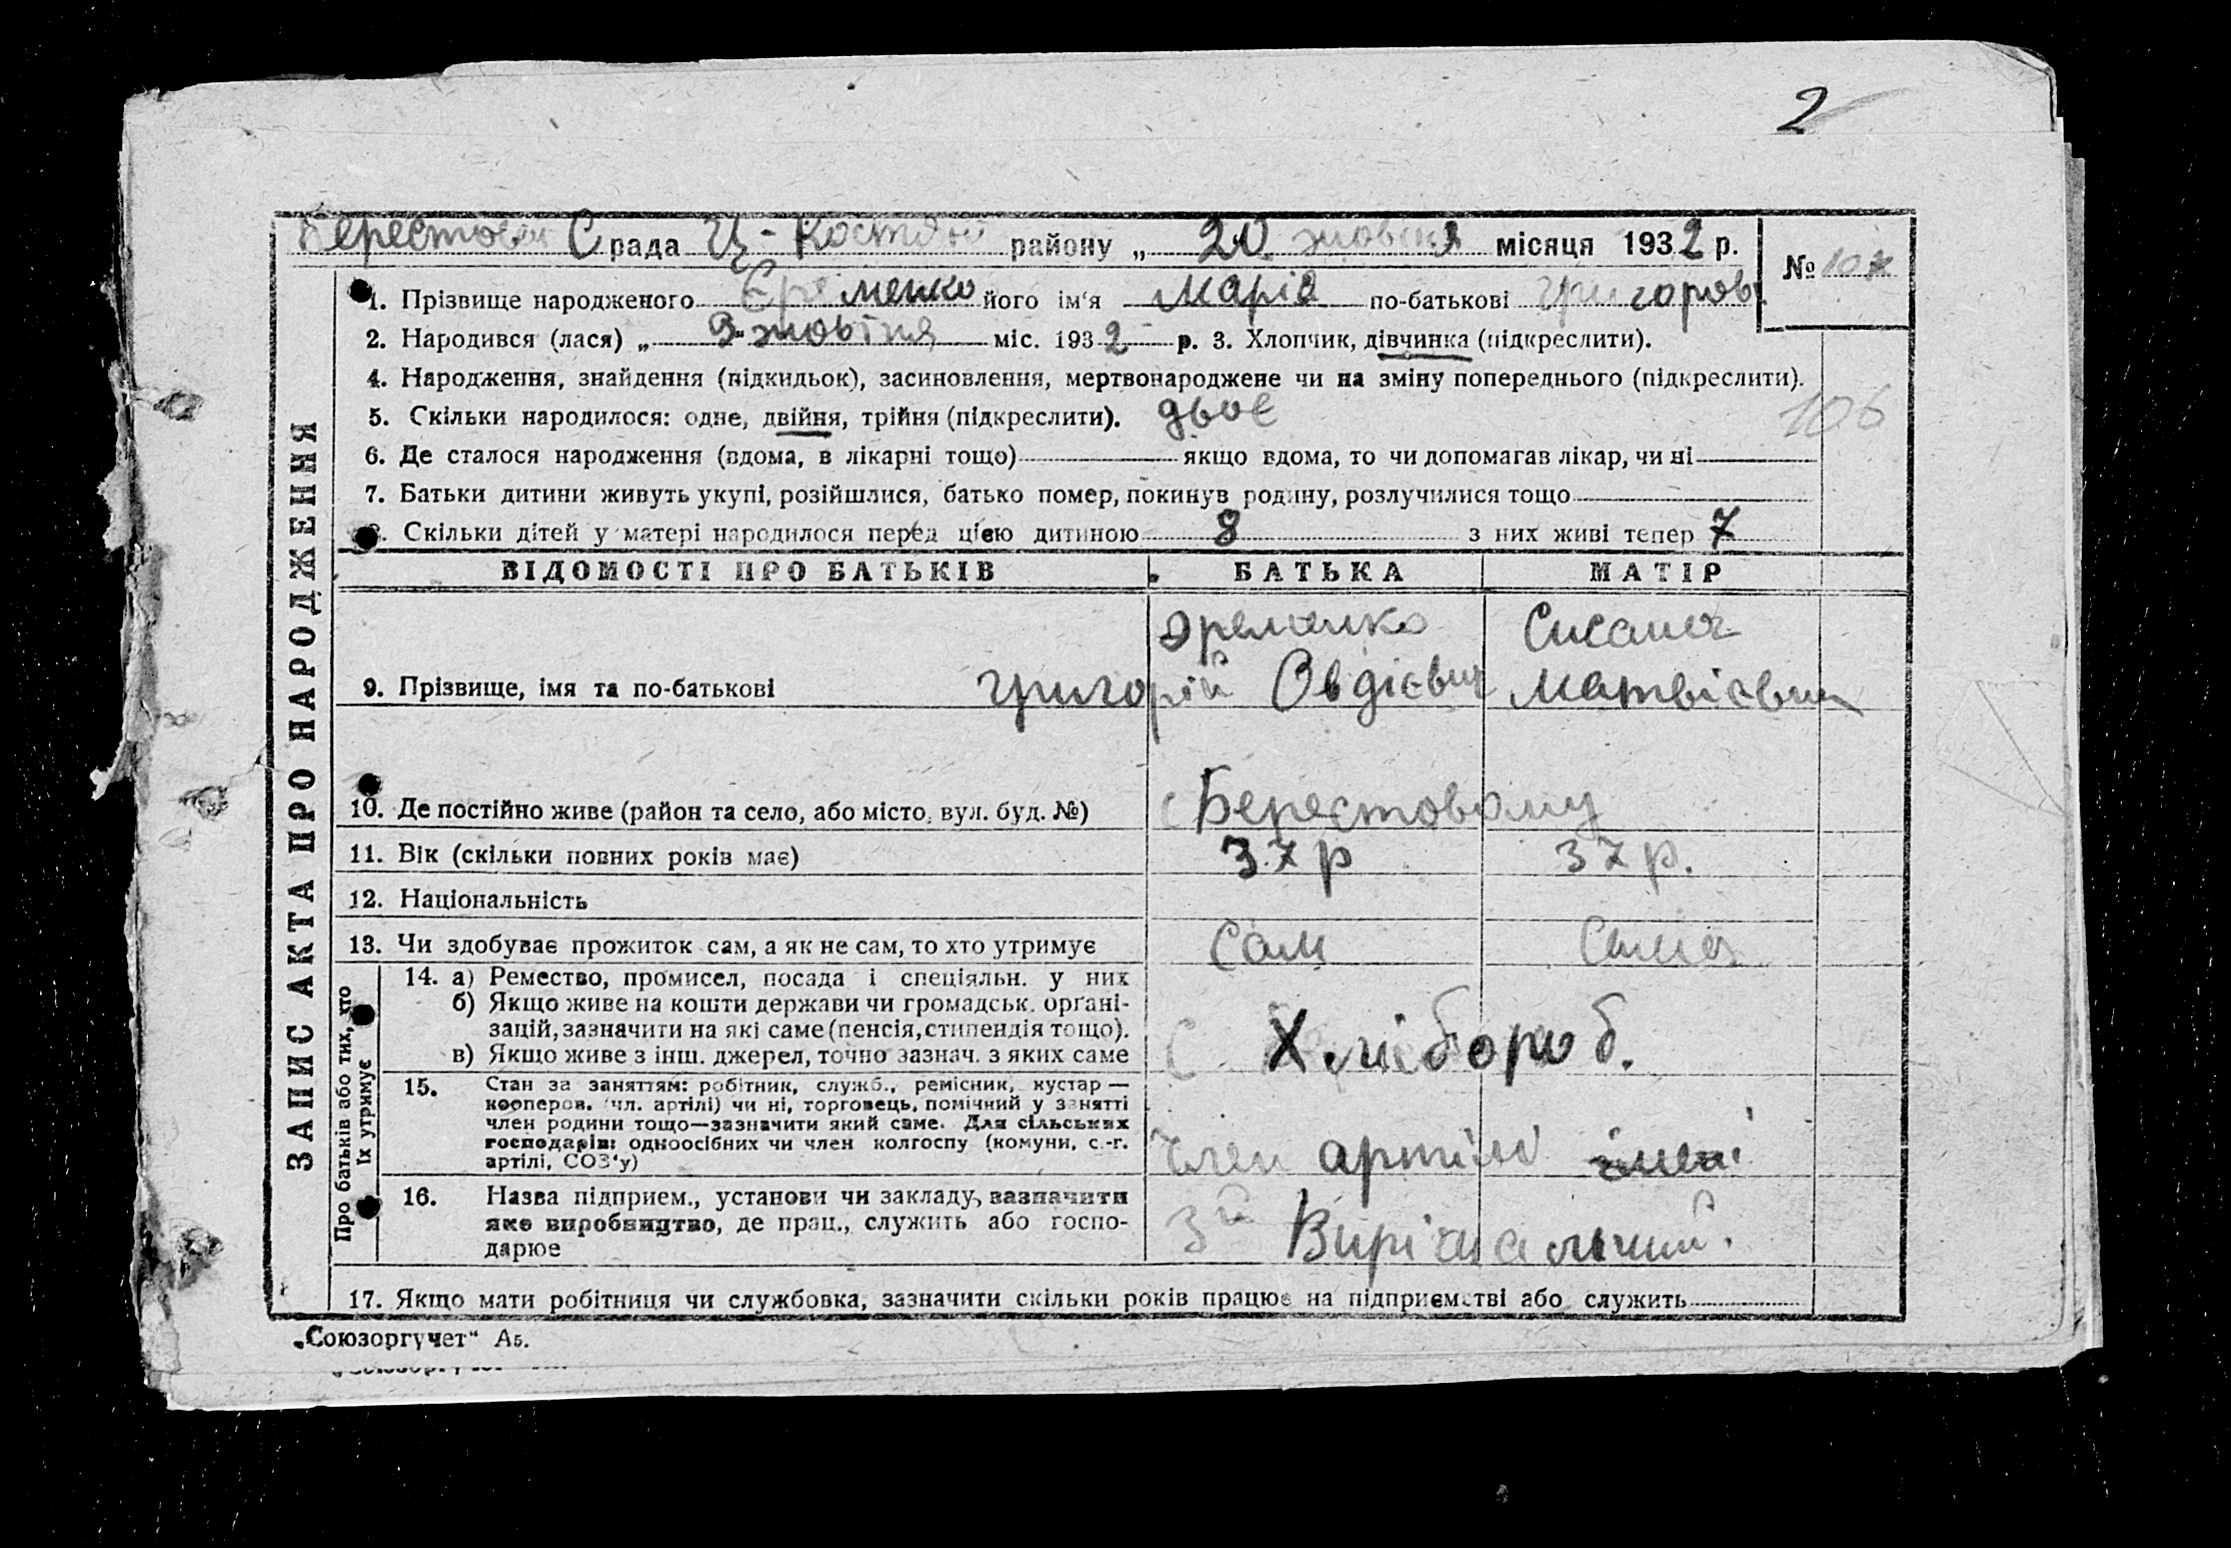 2
Берестов С рада Ц-Костян району „ 20 жовтня місяця 1932 р.
№ 107
1. Прізвище народженого Єременко його ім'я Марія по-батькові Григоров
2. Народився (лася) „ 3 жовтня міс. 1932 р. 3. Хлопчик, дівчинка (підкреслити).
4. Народження, знайдення (підкидьок), засиновлення, мертвонароджене чи на зміну попереднього (підкреслити).
5. Скільки народилося: одне, двійня, трійня (підкреслити). двоє
106
6. Де сталося народження (вдома, в лікарні тощо) якщо вдома, то чи допомагав лікар, чи ні
7. Батьки дитини живуть укупі, розійшлися, батько помер, покинув родину, розлучилися тощо
8. Скільки дітей у матері народилося перед цією дитиною 8 з них живі тепер 7
ЗАПИС АКТА ПРО НАРОДЖЕННЯ
ВІДОМОСТІ ПРО БАТЬКІВ БАТЬКА МАТІР
9. Прізвище, імя та по-батькові
Григорій Овдієвич
Матвієвна
10. Де постійно живе (район та село, або місто, вул. буд. №) с Берестовому
11. Вік (скільки повних років має) 37 р 37 р.
12. Національність
13. Чи здобуває прожиток сам, а як не сам, то хто утримує Сам Сама
Про батьків або тих, хто
їх утримує
14. а) Ремество, промисел, посада і спеціяльн. у них
б) Якщо живе на кошти держави чи громадськ. органі-
зацій, зазначити на які саме (пенсія, стипендія тощо).
в) Якщо живе з інш. джерел, точно зазнач. з яких саме
Хлібороб.
15. Стан за заняттям: робітник, служб., ремісник, кустар —
кооперов. (чл. артілі) чи ні, торговець, помічний у занятті
член родини тощо—зазначити який саме. Для сільських
господарів: одноосібних чи член колгоспу (комуни, с.-г.
артілі, СОЗ'у)
Член артілі імені
16. Назва підприєм., установи чи закладу, зазначити
яке виробництво, де прац., служить або госпо-
дарює
3й Вирішальний.
17. Якщо мати робітниця чи службовка, зазначити скільки років працює на підприємстві або служить
„Союзоргучет“ А5.